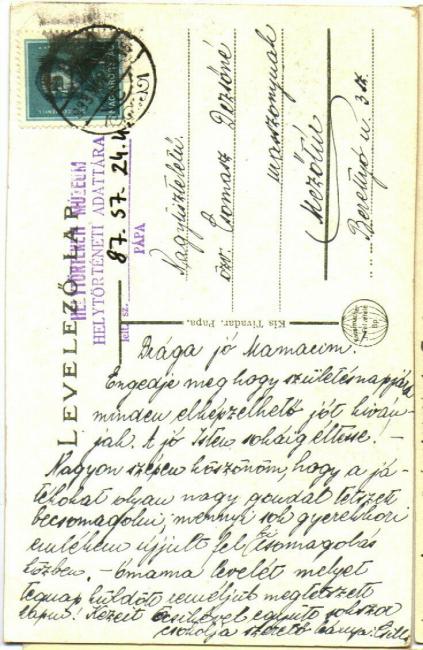 LEVELEZŐLAP
HELYTÖRTÉNETI MÚZEUM
HELYTÖRTÉNETI ADATTÁRA
lelt. sz.
87. 57. 24. 4
PÁPA
Nagytiszteletű
özv. Csomasz Dezsőné
asszonynak
Mezőtúr
Berettyó u. 3 sz.
Kis Tivadar, Pápa.
Drága jó Mamacim.
Engedje meg hogy születésnapjára
minden elképzelhető jót kíván-
jak. A jó Isten sokáig éltesse! -
Nagyon szépen köszönöm, hogy a já-
tékokat olyan nagy gonddal tetszett
becsomagolni, mennyi sok gyerekkori
emlékem újjult fel csomagolás
közben. - Omama levelét melyet
tegnap küldött reméljük megtetszett
kapni! Kezeit együtt sokszor
csókolja szerető leánya: Csilla